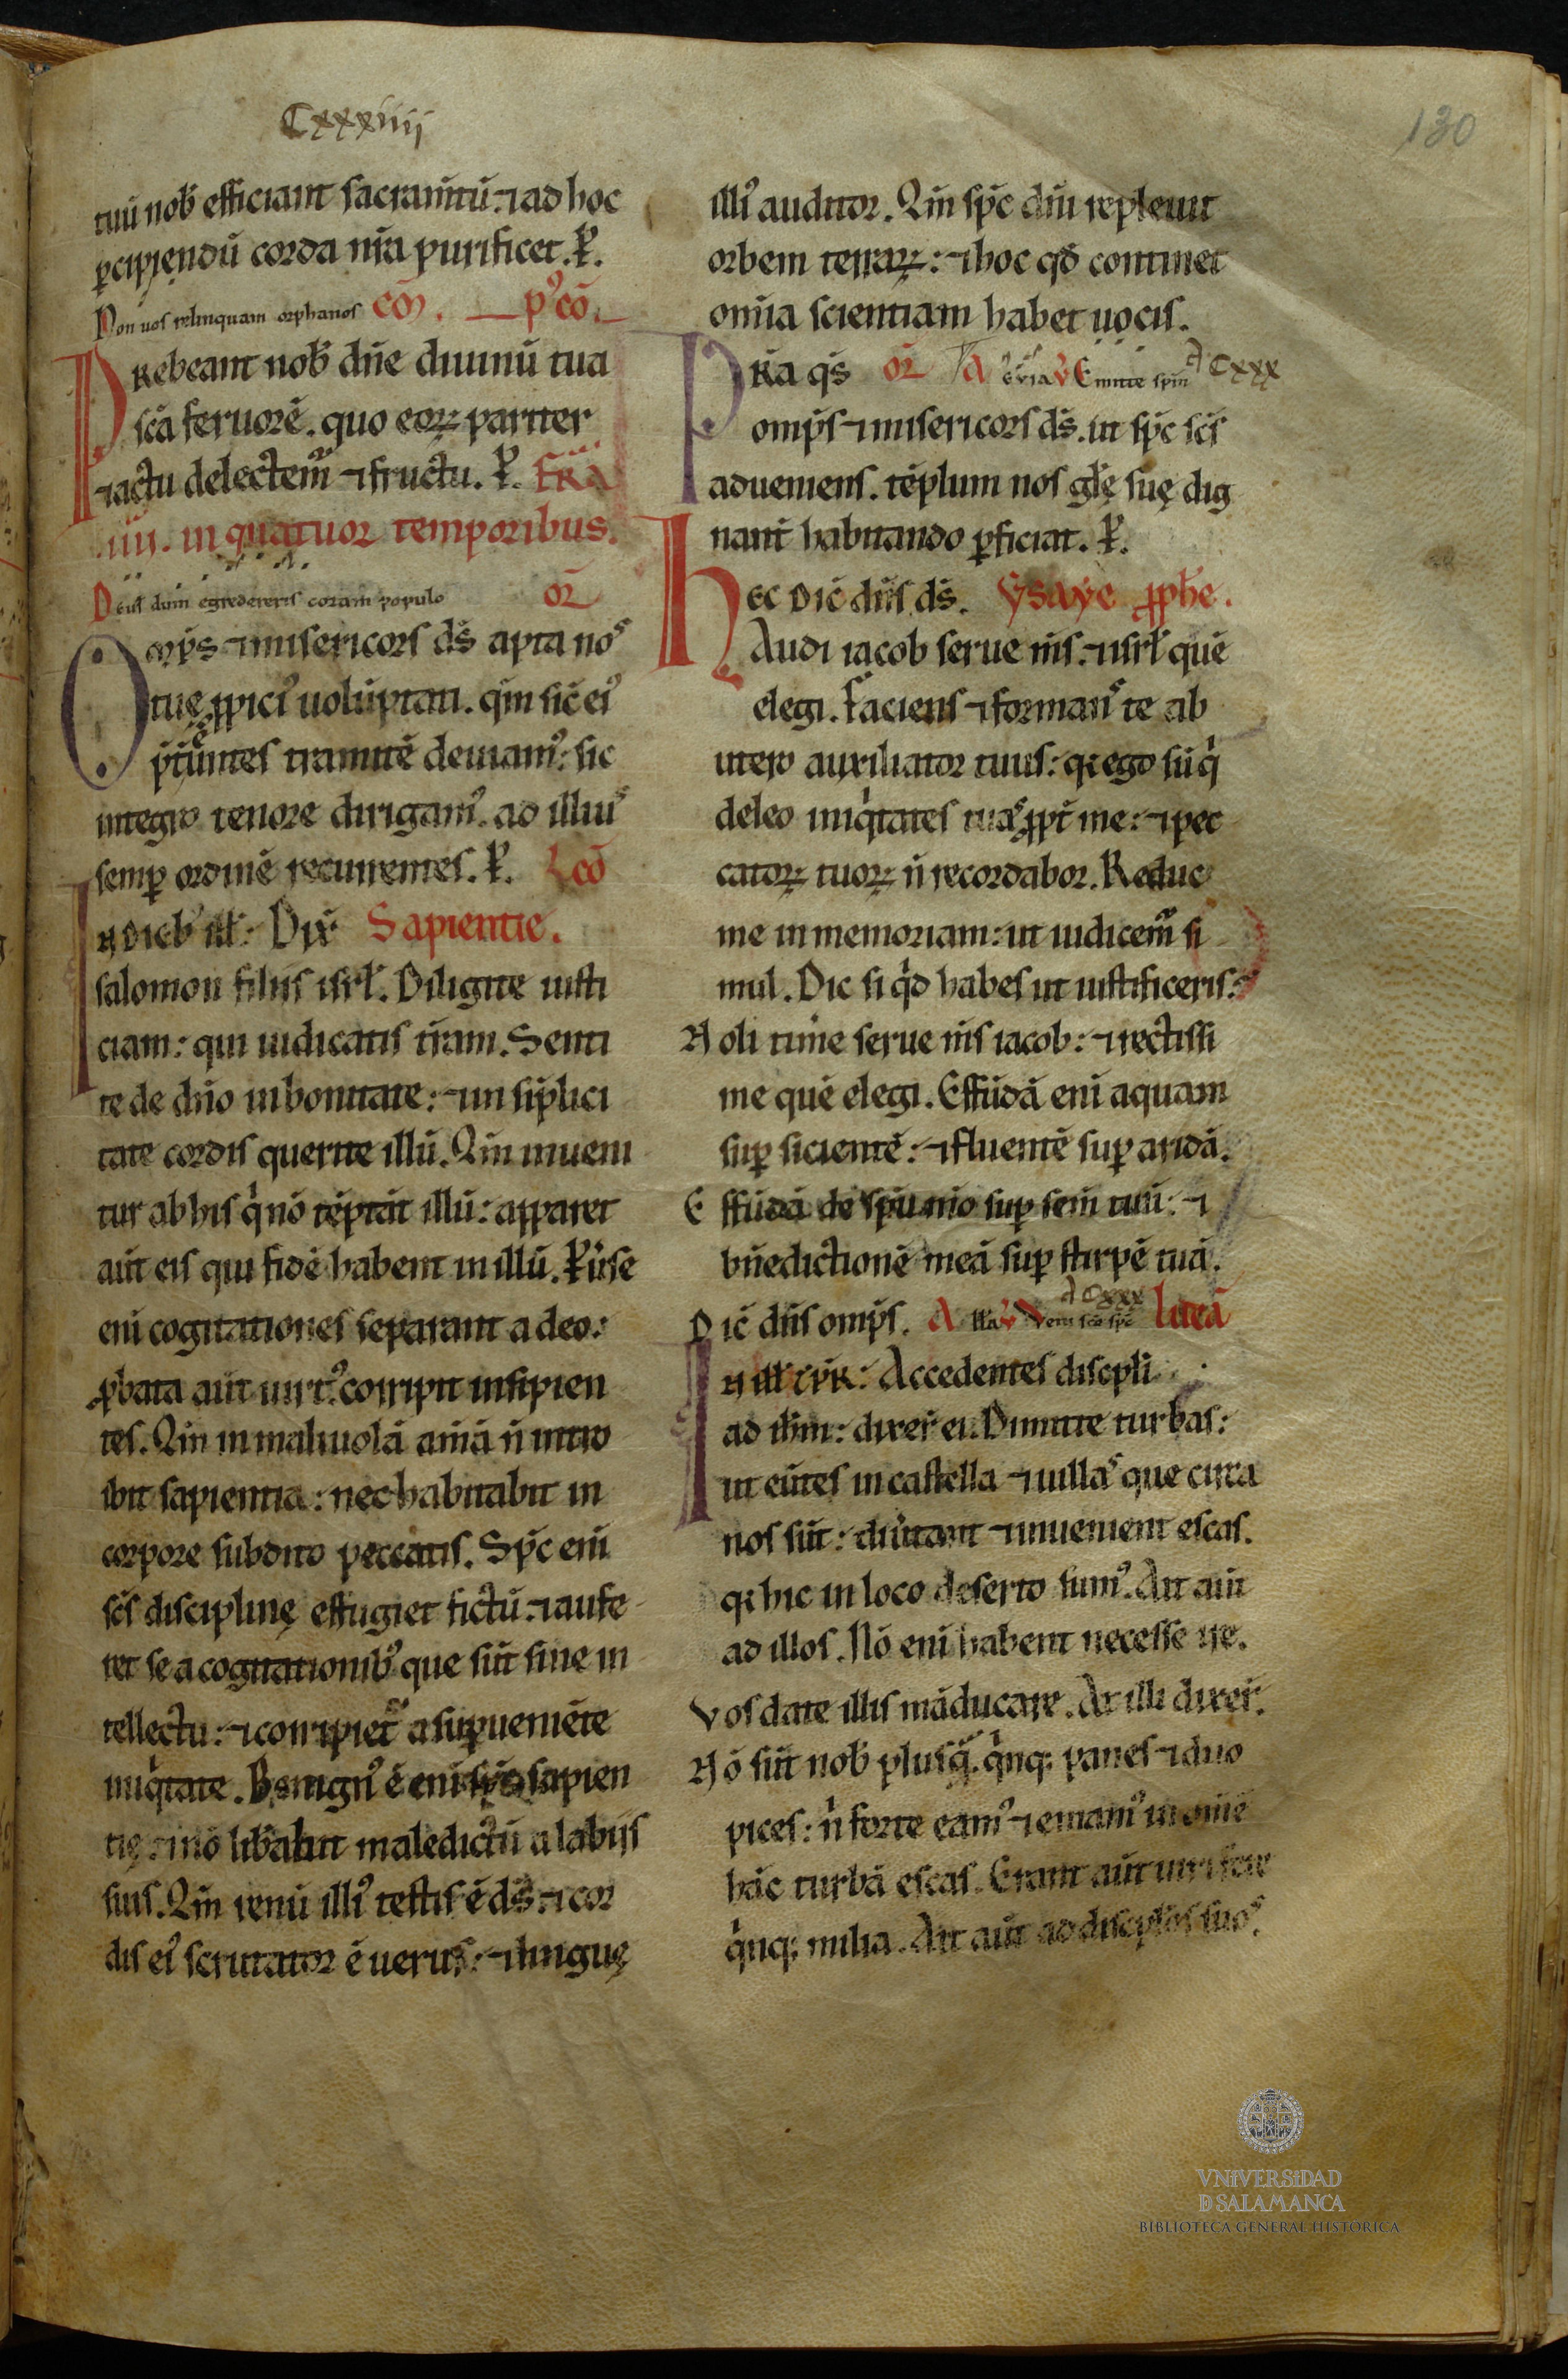 Cxxxiiij
130
tuū nob̄ efficiant sacram̄tū. ⁊ ad hoc
ꝑcipiendū corda nr̄a purificet. P̲.
Non uos relinquam orphanos cō͞m. p̾ cō͞.
PRebeant nob̄ dn̄e diuinū tua
sc̄a feruorē. quo eoꝝ pariter
⁊ actu delectem̄ ⁊ fructu. P̲. FR̄A
.iiii. in quatuor temporibus.
Deus dum egredereris coram populo or̄
Om̄ps ⁊ misericors ds̄ apta nos
tuę ꝓpici᷒ uolūptati. qm̄ sic̄ ei᷒
p̄t̄ereuntes tramitē deuiam᷒: sic
integro tenore dirigam᷒. ad illius
semꝑ ordinē recurrentes. P̲. Leō
IN dieb᷒ ill̄: Dix̄ Sapientie.
salomon filiis isrl̄. Diligite iusti
ciam: qui iudicatis tr̄am. Senti
te de dn̄o in bonitate: ⁊ in sip̄lici
tate cordis querite illū. Qm̄ inueni
tur ab his q̇ nō tēptāt illū: apparet
aūt eis qui fidē habent in illū. Puͥse
eni cogitationes separant a deo:
ꝓbata aūt uirt᷒ corripit insipien
tes. Qm̄ in maliuolā aīam n̄ intro
ibit sapientia: nec habitabit in
corpore subdito peccatis. Sp̄c eni
sc̄s disciplinę effugiet fictū. ⁊ aufe
ret se a cogitationib᷒ que sūt sine in
tellectu: ⁊ corripiet̄ a suꝑueniēte
iniq̇tate. Benign᷒ ē eni sp̄c sapien
tię: ⁊ nō lib̄abit maledictū a labiis
suis. Qm̄ renū illi᷒ testis ē ds̄. ⁊ cor
dis ei᷒ scrutator ē uerus: ⁊ linguę
illi᷒ auditor. Qm̄ sp̄c dn̄i repleuit
orbem terraꝝ: ⁊ hoc qd̄ continet
omīa scientiam habet uocis.
PRĀ qs̄ or̄ A euia V Emitte sp̄m A Cxxx
omp̄s ⁊ misericors ds̄. ut sp̄c sc̄s
adueniens. tēplum nos gl̄ę suę dig
nant̄ habitando ꝑficiat. P̲.
HEC Dic̄ dn̄s ds̄. Ysaye ꝓph̄e.
Audi iacob serue ms̄. ⁊ isrl̄ quē
elegi. Faciens ⁊ formans te ab
utero auxiliator tuus: q̢ ego sū q̇
deleo iniq̇tates tuas ꝓpt̄ me: ⁊ pec
catoꝝ tuoꝝ n̄ recordabor. Reduc
me in memoriam: ut iudicem̄ si
mul. Dic si q̇d habes ut iustificeris.
Noli timē serue ms̄ iacob: ⁊ rectissi
me quē elegi. Effūdā eni aquam
suꝑ sicientē: ⁊ fluentē suꝑ aridā.
Effūdā de sp̄u mō suꝑ sem̄ tuū: ⁊
bn̄edictionē meā suꝑ stirpē tuā.
Dic̄ dn̄s omp̄s. A ll̄a V Veni sc̄e sp̄c A Cxxx lucā
IN ill̄ tp̄r: Accedentes discpl̄i
ad ih̄m: dixer̄ ei. Dimitte turbas:
ut eūtes in castella ⁊ uillas que circa
nos sūt: diūtant ⁊ inueniant escas.
q̢ hic in loco deserto sum᷒. Ait aūt
ad illos. Nō eni habent necesse ire.
Vos date illis māducare. At illi dixer̄.
Nō sūt nob̄ plusq̄. q̇nq; panes ⁊ duo
pices: n̄ forte eam᷒ ⁊ emam᷒ in om̄e
hāc turbā escas. Erant aūt uiri fere
q̇nq; milia. Ait aūt ad discipl̄os suos.
VNIVERSIDAD
D SALAMANCA
BIBLIOTECA GENERAL HISTORICA